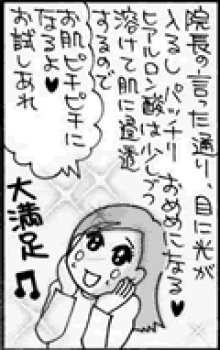 院長の言った通り、目に光が
入るし パッチリ おめめになる♥
ヒアルロン酸は少しずつ
溶けて肌に浸透
するので
お肌ピチピチに
なるよ♥
お試しあれ
大満足♫